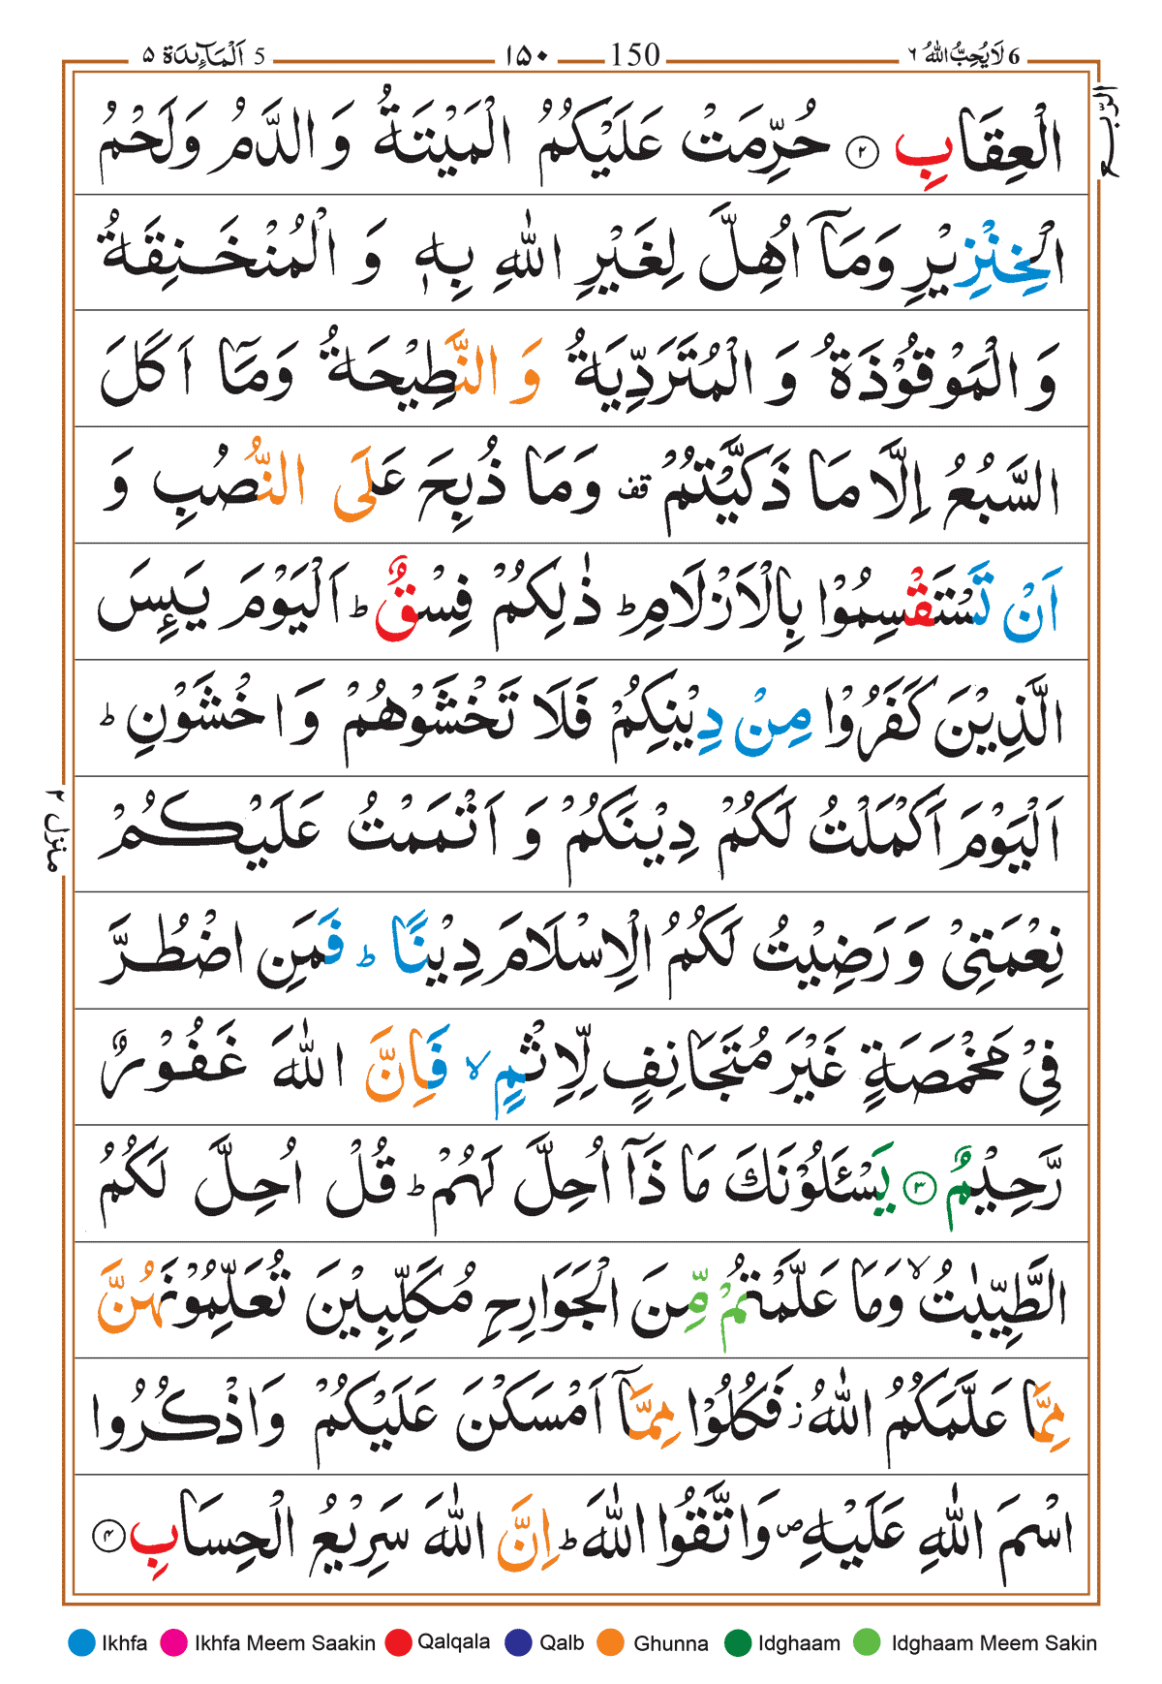 6 لَا يُحِبُّ اللّٰهُ ٦ 150 ١٥٠ 5 اَلْمَآئِدَة ٥
الرّبع
الْعِقَابِ ۝٢ حُرِّمَتْ عَلَيْكُمُ الْمَيْتَةُ وَ الدَّمُ وَلَحْمُ
الْخِنْزِيْرِ وَمَاۤ اُهِلَّ لِغَيْرِ اللّٰهِ بِهٖ وَ الْمُنْخَنِقَةُ
وَ الْمَوْقُوْذَةُ وَ الْمُتَرَدِّيَةُ وَ النَّطِيْحَةُ وَمَاۤ اَكَلَ
السَّبُعُ اِلَّا مَا ذَكَّيْتُمْ قف وَمَا ذُبِحَ عَلَى النُّصُبِ وَ
اَنْ تَسْتَقْسِمُوْا بِالْاَزْلَامِ ؕ ذٰلِكُمْ فِسْقٌ ؕ اَلْيَوْمَ يَئِسَ
الَّذِيْنَ كَفَرُوْا مِنْ دِيْنِكُمْ فَلَا تَخْشَوْهُمْ وَ اخْشَوْنِ ؕ
اَلْيَوْمَ اَكْمَلْتُ لَكُمْ دِيْنَكُمْ وَ اَتْمَمْتُ عَلَيْكُمْ
نِعْمَتِيْ وَ رَضِيْتُ لَكُمُ الْاِسْلَامَ دِيْنًا ؕ فَمَنِ اضْطُرَّ
فِيْ مَخْمَصَةٍ غَيْرَ مُتَجَانِفٍ لِّاِثْمٍ ۙ فَاِنَّ اللّٰهَ غَفُوْرٌ
رَّحِيْمٌ ۝٣ يَسْـَٔلُوْنَكَ مَا ذَاۤ اُحِلَّ لَهُمْ ؕ قُلْ اُحِلَّ لَكُمُ
الطَّيِّبٰتُ ۙ وَمَا عَلَّمْتُمْ مِّنَ الْجَوَارِحِ مُكَلِّبِيْنَ تُعَلِّمُوْنَهُنَّ
مِمَّا عَلَّمَكُمُ اللّٰهُ ز فَكُلُوْا مِمَّاۤ اَمْسَكْنَ عَلَيْكُمْ وَاذْكُرُوا
اسْمَ اللّٰهِ عَلَيْهِ ص وَاتَّقُوا اللّٰهَ ؕ اِنَّ اللّٰهَ سَرِيْعُ الْحِسَابِ ۝٤
منزل ٢
Ikhfa Ikhfa Meem Saakin Qalqala Qalb Ghunna Idghaam Idghaam Meem Sakin